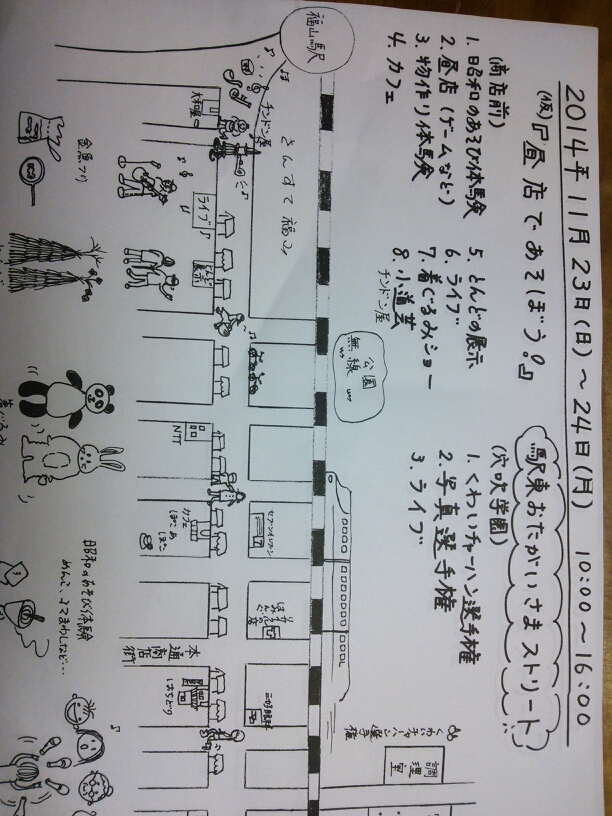 2014年 11月 23日(日)～24日(月) 10:00～16:00
(仮)『昼店であそぼう!』
駅東おたがいさまストリート
(商店前)
1. 昭和のあそび体験
2. 昼店(ゲームなど)
3. 物作り体験
4. カフェ
5. とんどの展示
6. ライブ
7. 着ぐるみショー
8. 小道芸
チンドン屋
(穴吹学園)
1. くわいチャーハン選手権
2. 写真選手権
3. ライブ
福山駅
さんすて福山
公園
無線
チンドン屋
大和屋
ライブ♪
とんど展示
NTT
カフェ
ぽこあぽこ
セブンイレブン
本通商店街
はちどり
くわいチャーハン選手権
調理室
金魚つり
とんど
着ぐるみ
昭和のあそび体験
めんこ、コマまわしなど…